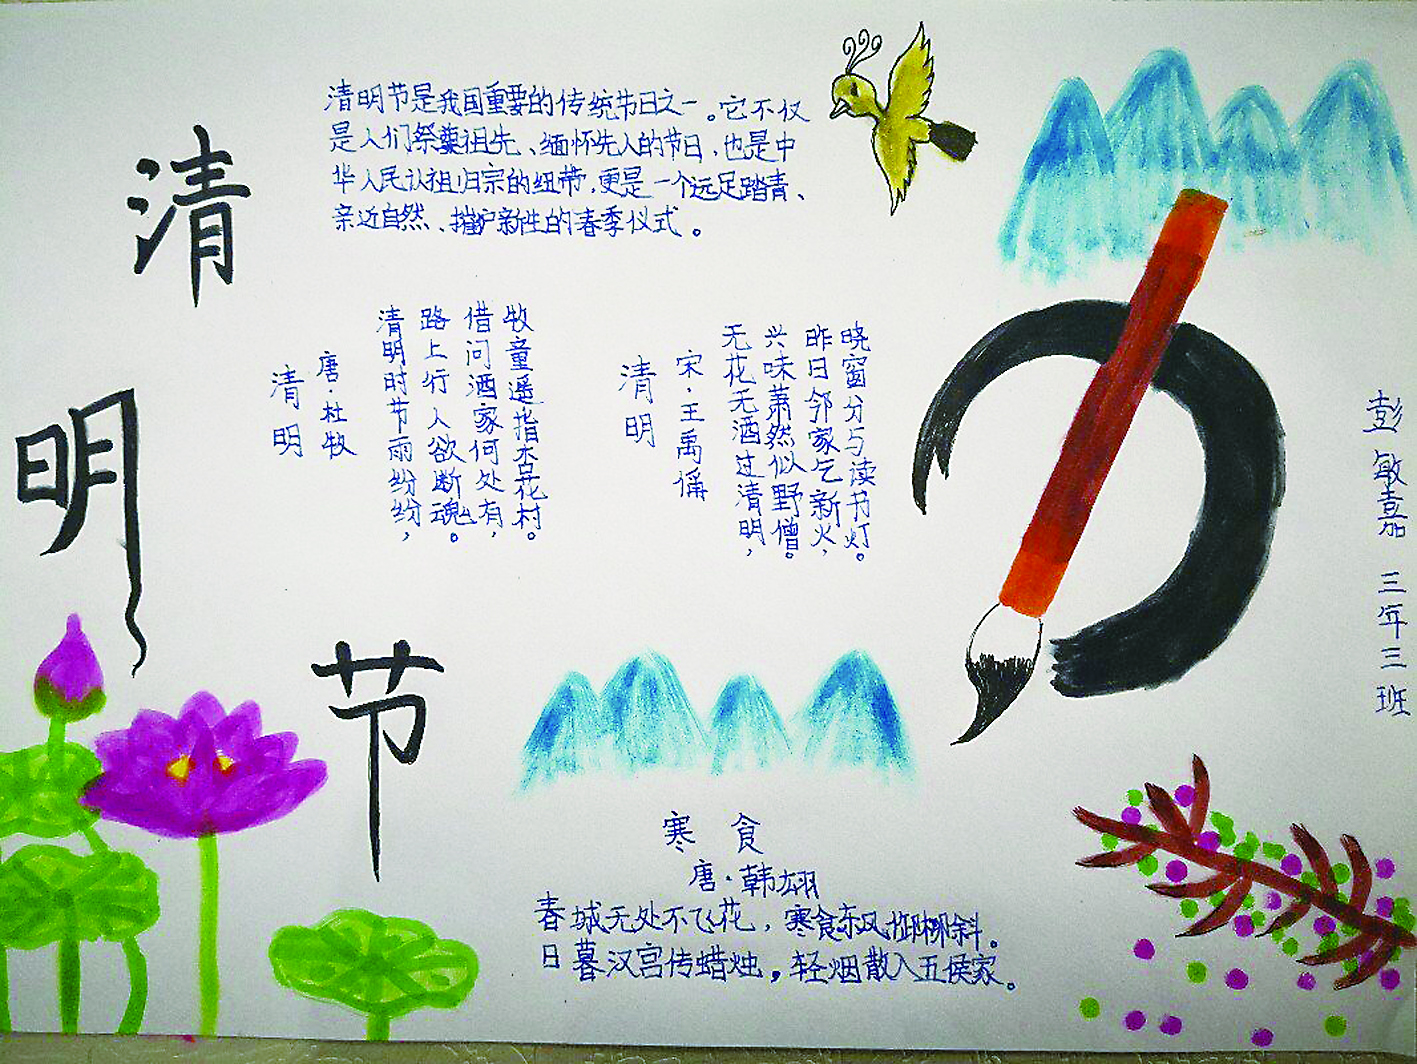 清
明
节
清明节是我国重要的传统节日之一。它不仅
是人们祭奠祖先、缅怀先人的节日,也是中
华人民认祖归宗的纽带,更是一个远足踏青、
亲近自然、摧护新生的春季仪式。
清明
唐·杜牧
清明时节雨纷纷,
路上行人欲断魂。
借问酒家何处有,
牧童遥指杏花村。
清明
宋·王禹偁
无花无酒过清明,
兴味萧然似野僧。
昨日邻家乞新火,
晓窗分与读书灯。
寒食
唐·韩翃
春城无处不飞花,寒食东风御柳斜。
日暮汉宫传蜡烛,轻烟散入五侯家。
彭敏嘉 三年三班